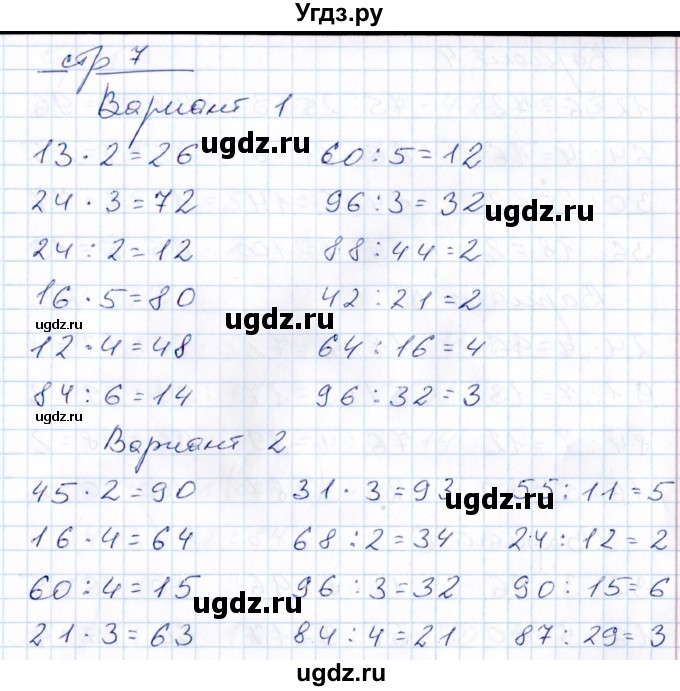 Угдз.ру
стр 7
Вариант 1
13 · 2 = 26 60 : 5 = 12
ugdz.ru
24 · 3 = 72 96 : 3 = 32
ugdz.ru
24 : 2 = 12 88 : 44 = 2
16 · 5 = 80 42 : 21 = 2
ugdz.ru ugdz.ru
12 · 4 = 48 64 : 16 = 4
84 : 6 = 14 96 : 32 = 3
ugdz.ru
Вариант 2
45 · 2 = 90 31 · 3 = 93 55 : 11 = 5
ugdz.ru
16 · 4 = 64 68 : 2 = 34 24 : 12 = 2
60 : 4 = 15 96 : 3 = 32 90 : 15 = 6
ugdz.ru
21 · 3 = 63 84 : 4 = 21 87 : 29 = 3
ugdz.ru